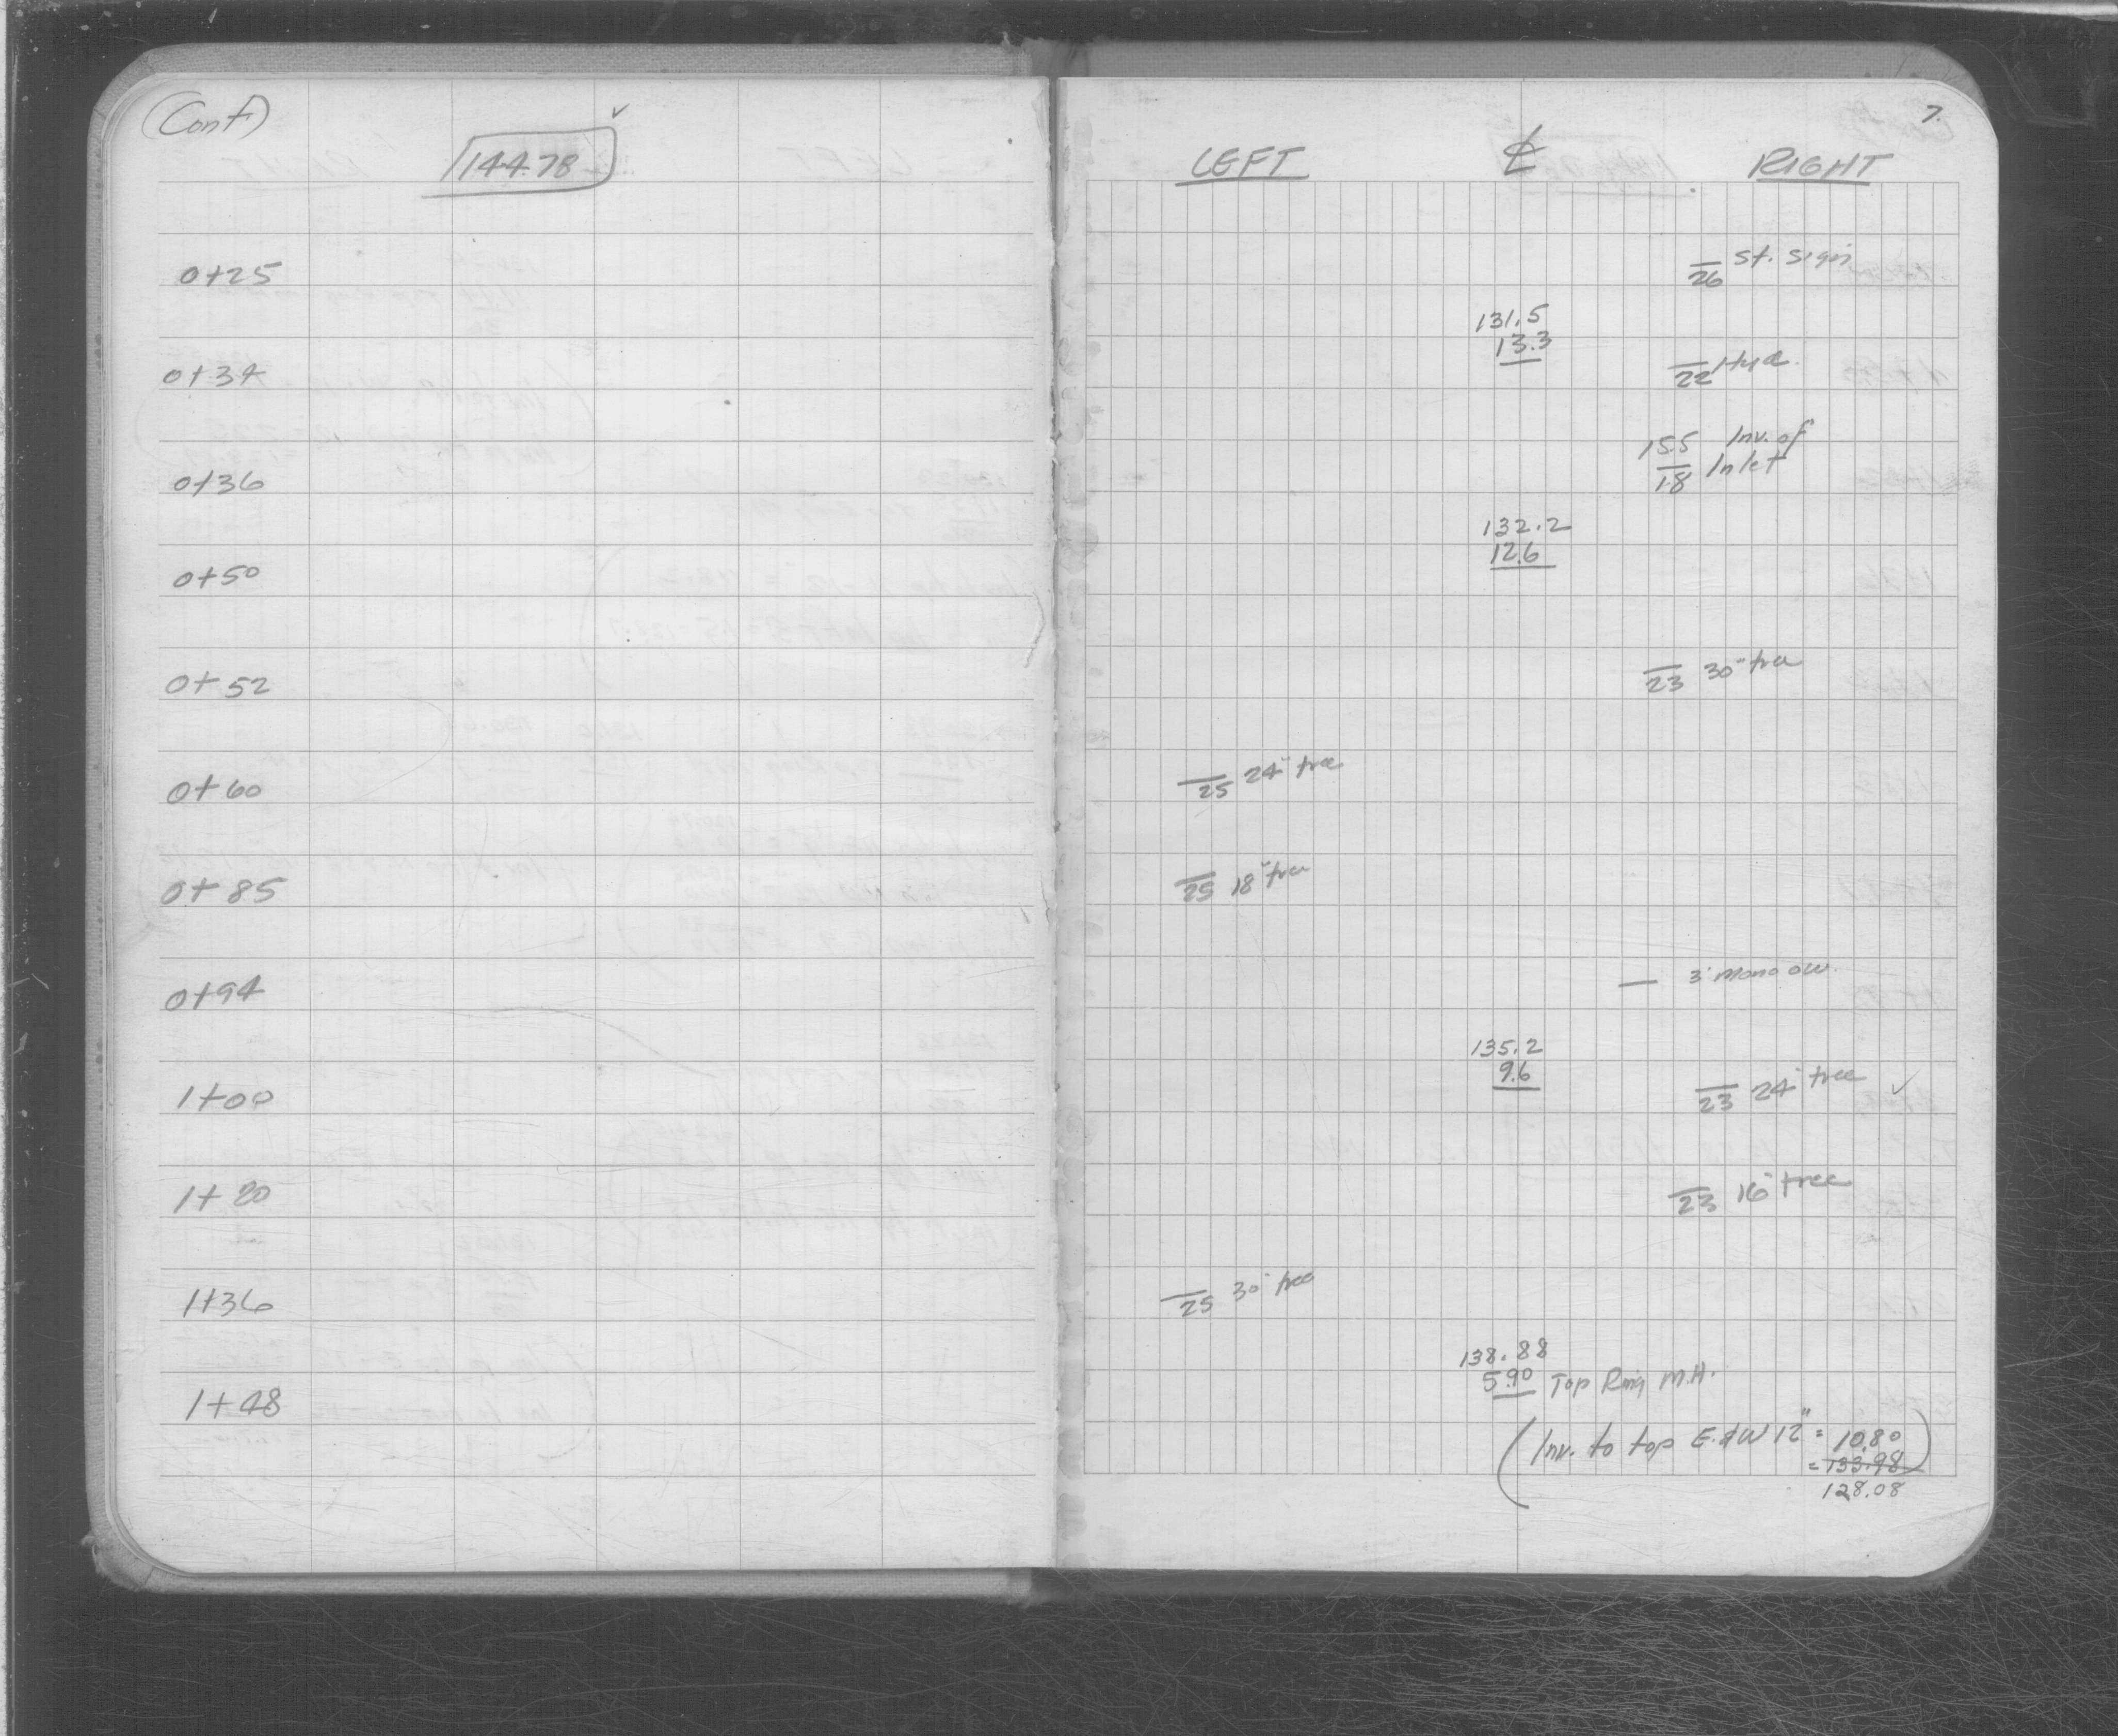 (Cont)
144.78
7.
LEFT ℄ RIGHT
0+25
26 St. Sign
131.5
13.3
0+34
22 Hyd.
0+36
15.5 Inv. of
18 Inlet
132.2
12.6
0+50
0+52
23 30" tree
0+60
25 24" tree
0+85
25 18" tree
0+94
3' mono
135.2
9.6
1+00
23 24" tree ✓
1+20
23 16" tree
1+36
25 30" tree
138.88
5.90 Top Ring M.H.
1+48
(Inv. to top E.&W 12" = 10.80)
= 133.98
128.08